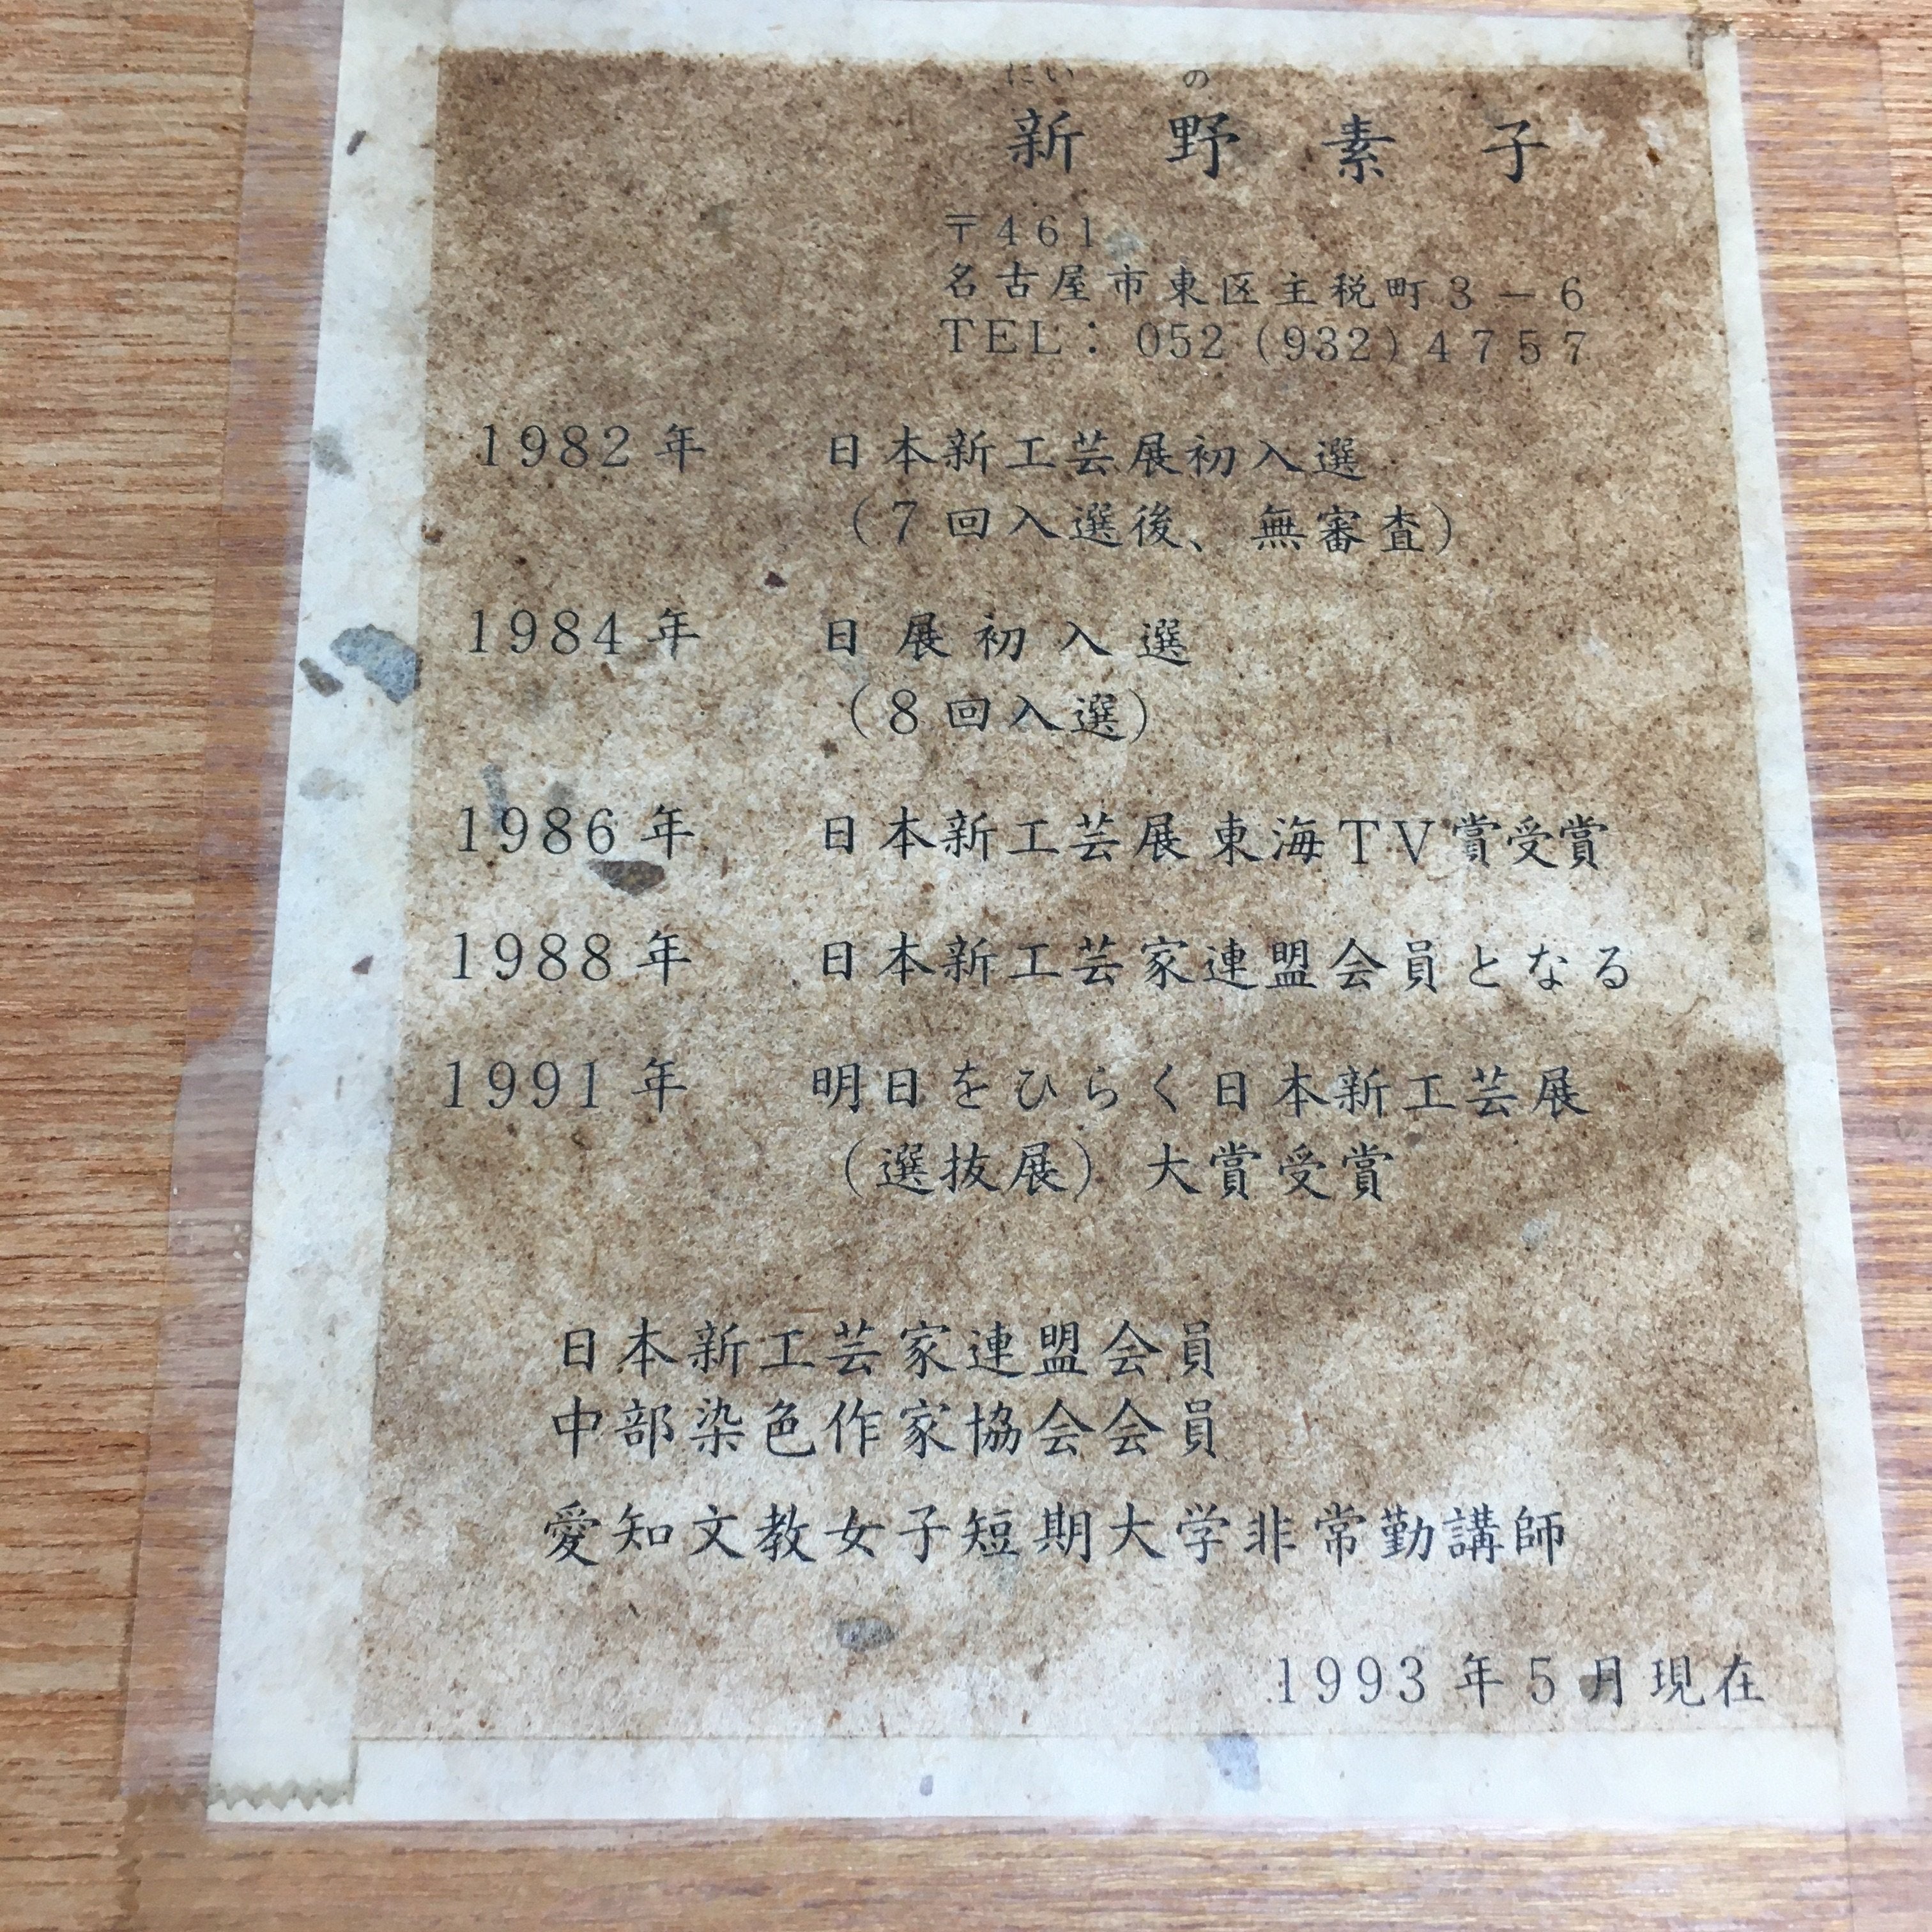 にい の
新野素子
〒461
名古屋市東区主税町3－6
TEL：052（932）4757
1982年 日本新工芸展初入選
（7回入選後、無審査）
1984年 日展初入選
（8回入選）
1986年 日本新工芸展東海TV賞受賞
1988年 日本新工芸家連盟会員となる
1991年 明日をひらく日本新工芸展
（選抜展）大賞受賞
日本新工芸家連盟会員
中部染色作家協会会員
愛知文教女子短期大学非常勤講師
1993年5月現在